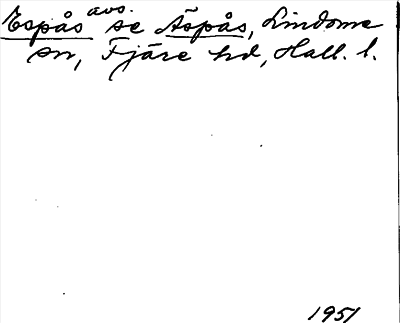 Espås avs. se Äspås, Lindome
sn, Fjäre hd, Hall. l.
1951